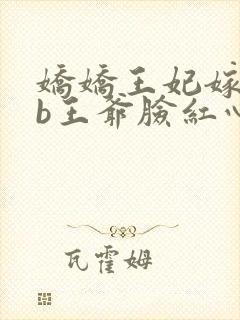 嬌嬌王妃嫁
b王爺臉紅心
瓦霍姆